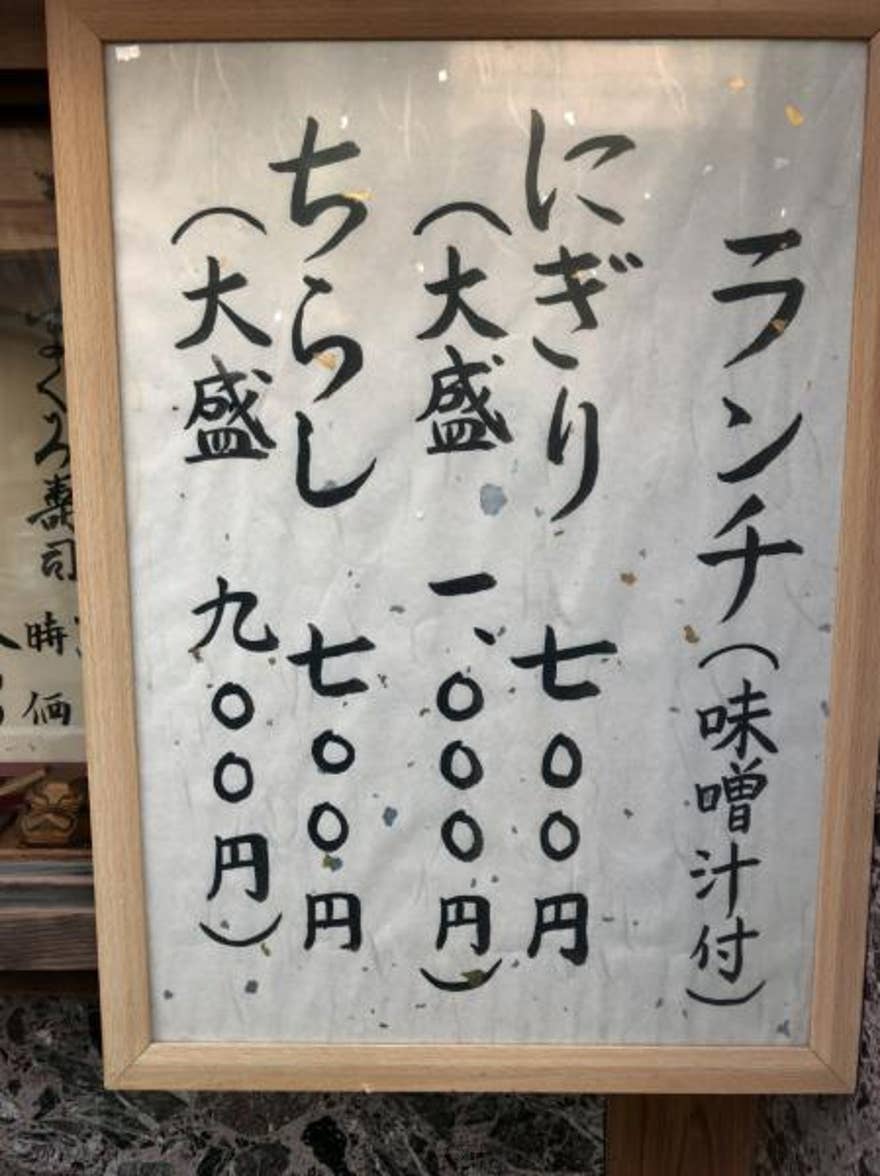 ランチ(味噌汁付)
にぎり 七〇〇円
(大盛 一、〇〇〇円)
ちらし 七〇〇円
(大盛 九〇〇円)
まぐろ寿司 時価